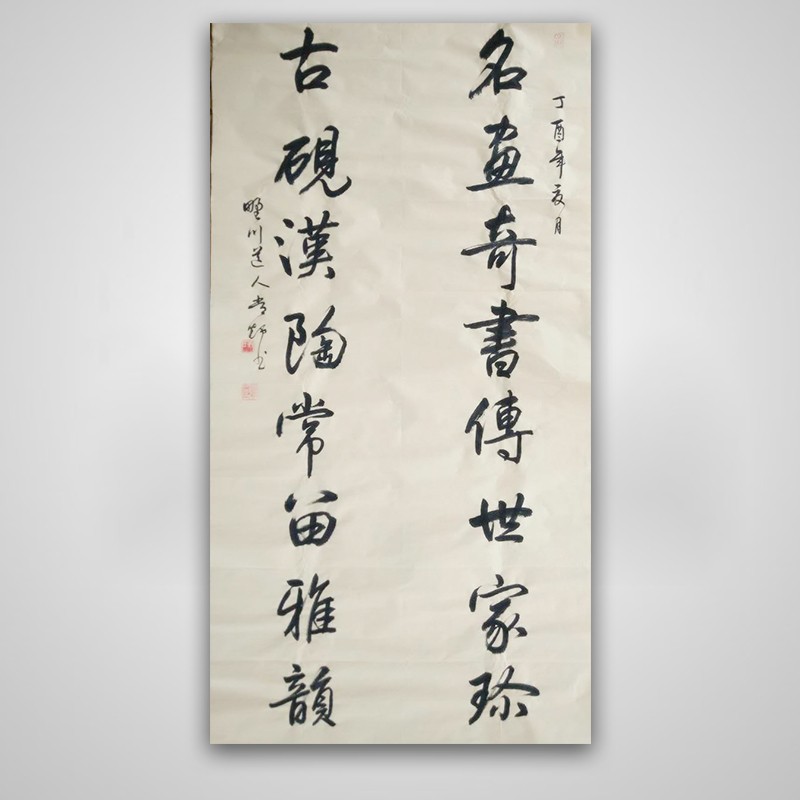 丁酉年夏月
名畫奇書傳世家珎
古硯漢陶常留雅韻
野川道人书